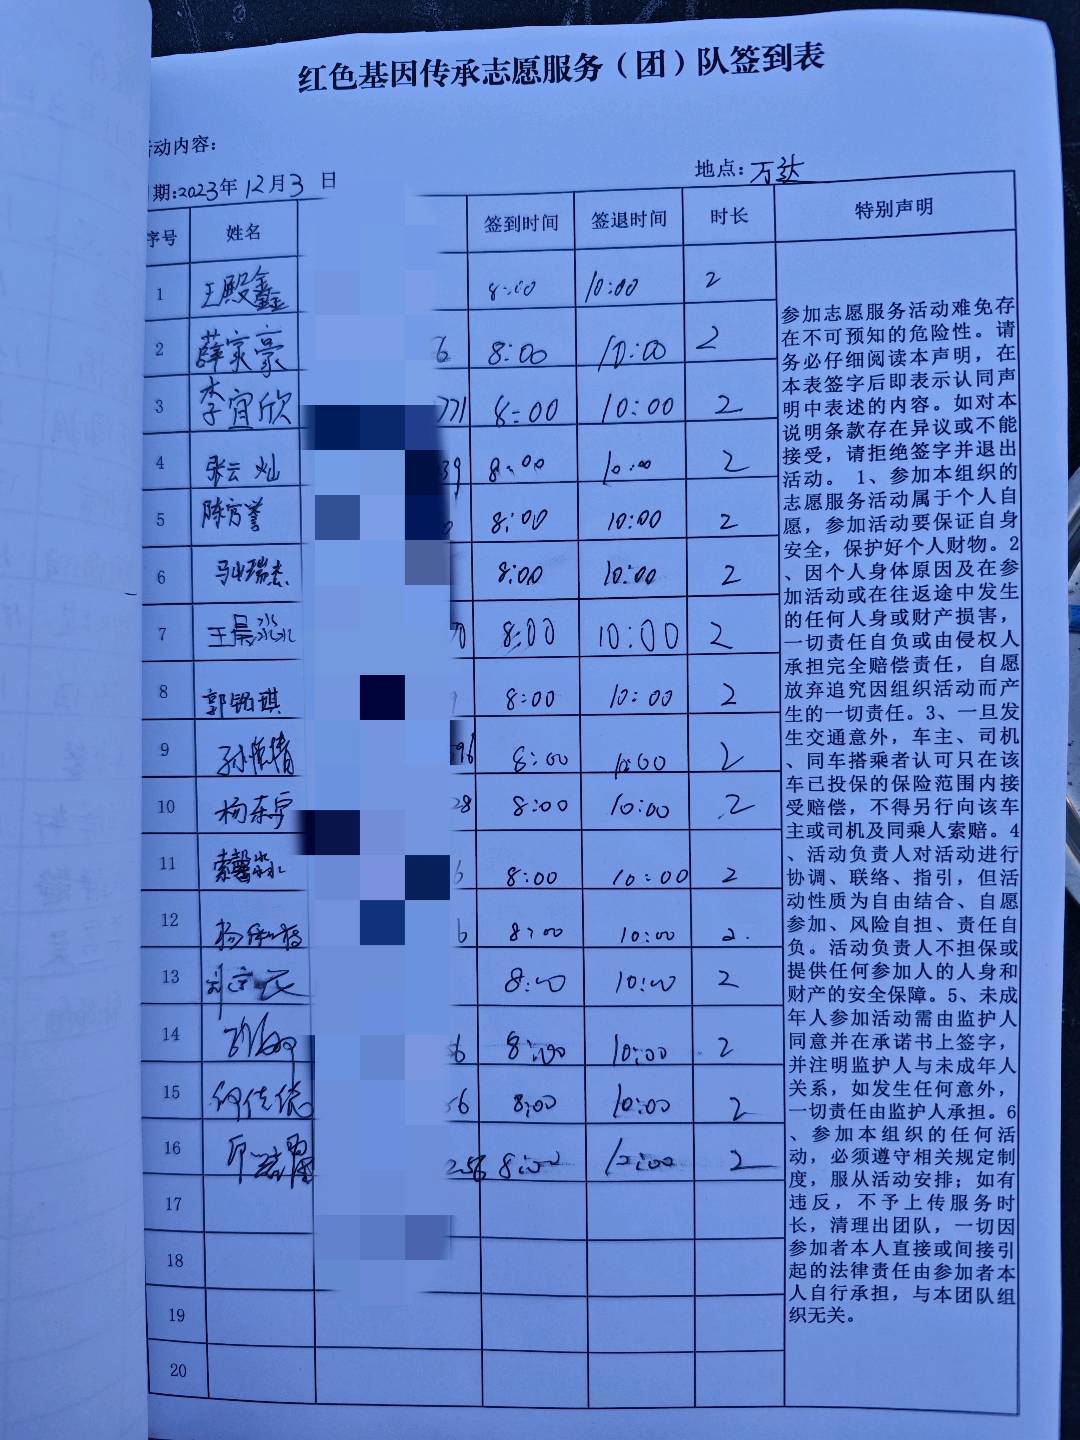 红色基因传承志愿服务（团）队签到表
活动内容：
期：2023年12月3日
地点：万达
序号 姓名 签到时间 签退时间 时长 特别声明
1 王殿鑫 8:00 10:00 2
2 薛家豪 6 8:00 10:00 2
3 李宜欣 771 8:00 10:00 2
4 张云灿 39 8:00 10:00 2
5 8:00 10:00 2
6 8:00 10:00 2
7 70 8:00 10:00 2
8 8:00 10:00 2
9 96 8:00 10:00 2
10 28 8:00 10:00 2
11 6 8:00 10:00 2
12 6 8:00 10:00 2.
13 8:00 10:00 2
14 56 8:00 10:00 2
15 56 8:00 10:00 2
16 256 8:00 2
17
18
19
20
参加志愿服务活动难免存
在不可预知的危险性。请
务必仔细阅读本声明，在
本表签字后即表示认同声
明中表述的内容。如对本
说明条款存在异议或不能
接受，请拒绝签字并退出
活动。 1、参加本组织的
志愿服务活动属于个人自
愿，参加活动要保证自身
安全，保护好个人财物。2
、因个人身体原因及在参
加活动或在往返途中发生
的任何人身或财产损害，
一切责任自负或由侵权人
承担完全赔偿责任，自愿
放弃追究因组织活动而产
生的一切责任。3、一旦发
生交通意外，车主、司机
、同车搭乘者认可只在该
车已投保的保险范围内接
受赔偿，不得另行向该车
主或司机及同乘人索赔。4
、活动负责人对活动进行
协调、联络、指引，但活
动性质为自由结合、自愿
参加、风险自担、责任自
负。活动负责人不担保或
提供任何参加人的人身和
财产的安全保障。5、未成
年人参加活动需由监护人
同意并在承诺书上签字，
并注明监护人与未成年人
关系，如发生任何意外，
一切责任由监护人承担。6
、参加本组织的任何活
动，必须遵守相关规定制
度，服从活动安排；如有
违反，不予上传服务时
长，清理出团队，一切因
参加者本人直接或间接引
起的法律责任由参加者本
人自行承担，与本团队组
织无关。